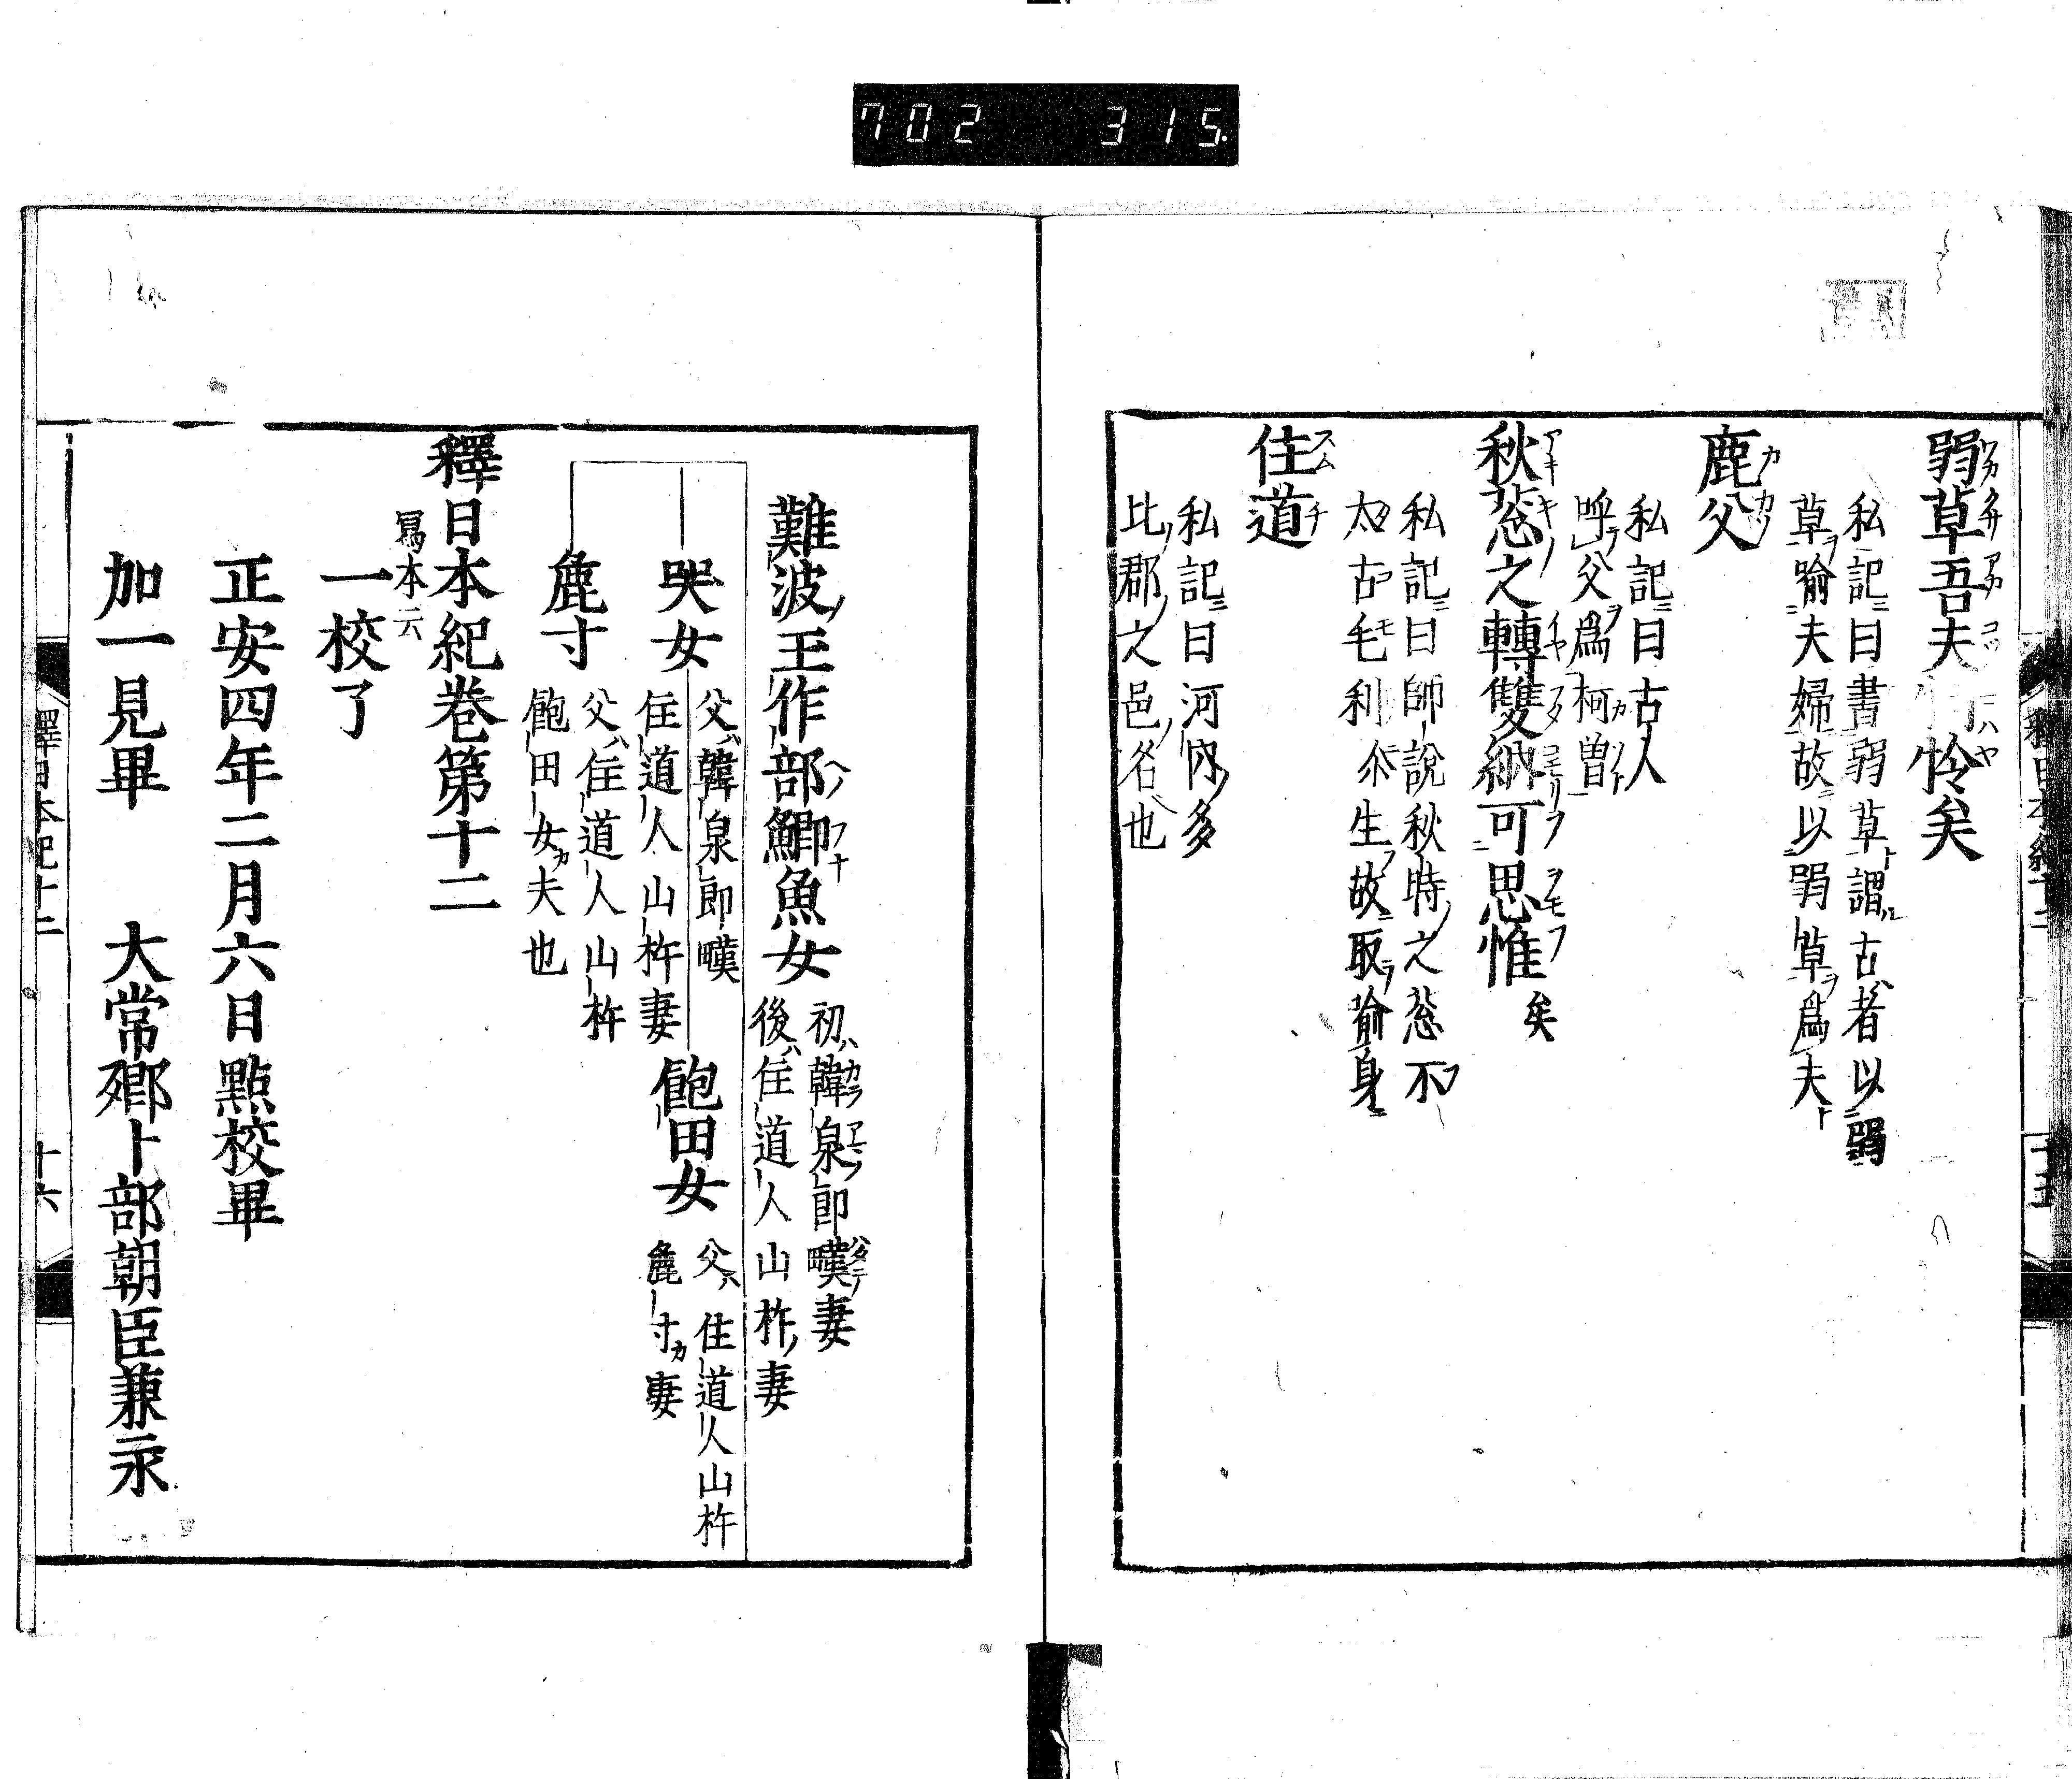 702 315.
弱草吾夫 怜矣
私記曰書弱草謂古者以弱
草喻夫婦故以弱草爲夫
鹿父
私記曰古人
呼父爲柯曽
秋葱之轉雙納可思惟矣
私記曰師說秋時之葱不
太古毛利尒生故取喻身
住道
私記曰河内多
比郡之邑名也
難波王作部鯽魚女
初韓泉即
妻
後住道人山杵妻
哭女
父韓泉即
住道人山杵妻
飽田女
父住道人山杵
麁寸妻
麁寸
父住道人山杵
飽田女夫也
釋日本紀卷第十二
寫本云
一校了
正安四年二月六日點校畢
加一見畢 大常卿卜部朝臣兼永
釋日本紀十二 十六